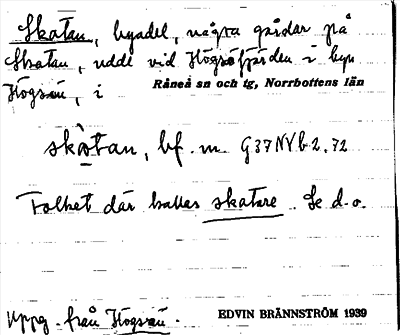 Skatan, byadel, några gårdar på
Skatan, udde vid Högsöfjärden i byn
Högsön, i Råneå sn och tg, Norrbottens län
skàtan, bf. m. G37NVb2.72
Folket där kallas skatare. Se d.o.
Uppg. från Högsön. EDVIN BRÄNNSTRÖM 1939